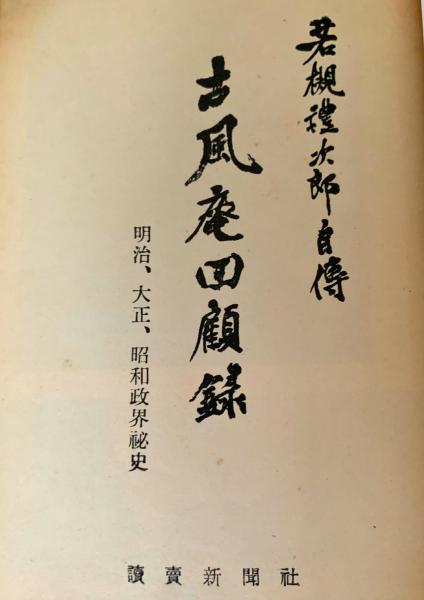 若槻禮次郎自傳
古風庵回顧録
明治、大正、昭和政界祕史
讀賣新聞社